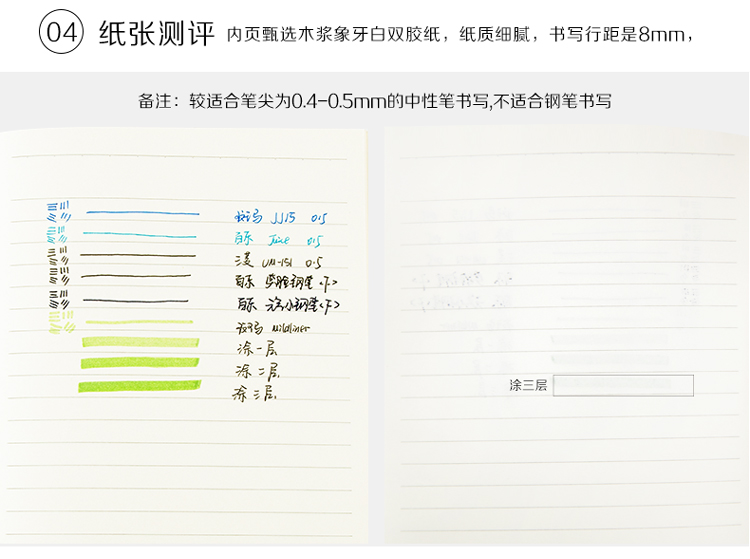 04 纸张测评 内页甄选木浆象牙白双胶纸，纸质细腻，书写行距是8mm，
备注：较适合笔尖为0.4-0.5mm的中性笔书写,不适合钢笔书写
斑马 JJ15 0.5
百乐 Juice 0.5
三菱 UM-151 0.5
百乐 钢笔<F>
百乐 钢笔<F>
斑马 Mildliner
涂一层
涂二层
涂三层
涂三层